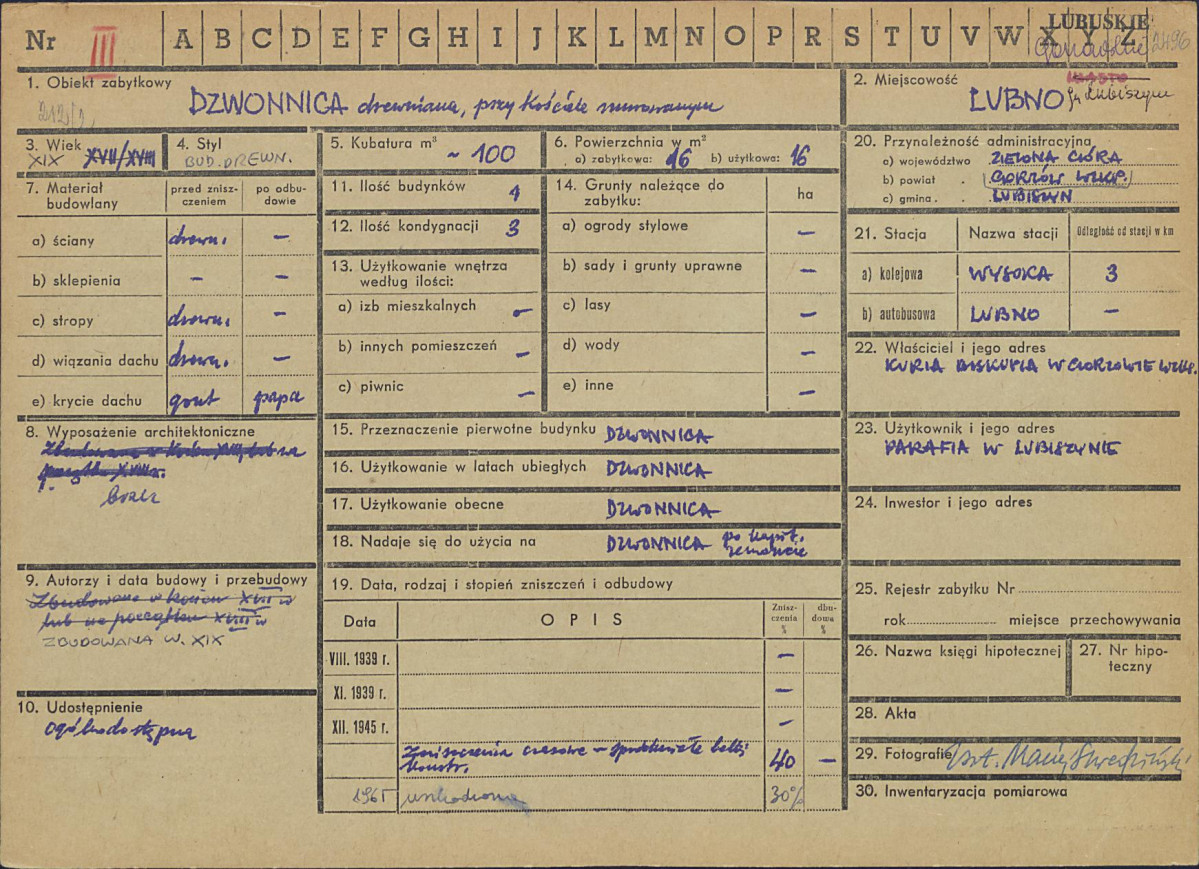 Nr III A B C D E F G H I J K L M N O P R S T U V W X Y Z
LUBUSKIE
2496
1. Obiekt zabytkowy
212/1
DZWONNICA drewniana, przy kościele murowanym
2. Miejscowość
miasto
LUBNO gm. Lubiszyn
3. Wiek
XIX XVII/XVIII
4. Styl
BUD. DREWN.
5. Kubatura m³
~ 100
6. Powierzchnia w m²
a) zabytkowa: 16 b) użytkowa: 16
7. Materiał budowlany
przed znisz-czeniem
po odbu-dowie
a) ściany drewn. –
b) sklepienia – –
c) stropy drewn. –
d) wiązania dachu drewn. –
e) krycie dachu gont papa
8. Wyposażenie architektoniczne
Zbudowana w końcu XVII, lub na
początku XVIII w.
brak
9. Autorzy i data budowy i przebudowy
Zbudowane w końcu XVII w
lub na początku XVIII w
ZBUDOWANA W. XIX
10. Udostępnienie
ogólnodostępna
11. Ilość budynków 1
12. Ilość kondygnacji 3
13. Użytkowanie wnętrza
według ilości:
a) izb mieszkalnych –
b) innych pomieszczeń –
c) piwnic –
14. Grunty należące do
zabytku:
ha
a) ogrody stylowe –
b) sady i grunty uprawne –
c) lasy –
d) wody –
e) inne –
15. Przeznaczenie pierwotne budynku DZWONNICA
16. Użytkowanie w latach ubiegłych DZWONNICA
17. Użytkowanie obecne DZWONNICA
18. Nadaje się do użycia na DZWONNICA po kapit.
remoncie
19. Data, rodzaj i stopień zniszczeń i odbudowy
Data
OPIS
Znisz-
czenia
%
dbu-
dowa
%
VIII. 1939 r. –
XI. 1939 r. –
XII. 1945 r. –
Zniszczenia czasowe – spróchniałe belki
konstr. 40 –
1965 uszkodzona 30%
20. Przynależność administracyjna
a) województwo ZIELONA GÓRA
b) powiat . GORZÓW WLKP.
c) gmina . LUBISZYN
21. Stacja
Nazwa stacji
Odległość od stacji w km
a) kolejowa WYSOKA 3
b) autobusowa LUBNO –
22. Właściciel i jego adres
KURIA BISKUPIA W GORZOWIE WLKP.
23. Użytkownik i jego adres
PARAFIA W LUBISZYNIE
24. Inwestor i jego adres
25. Rejestr zabytku Nr
rok miejsce przechowywania
26. Nazwa księgi hipotecznej
27. Nr hipo-
teczny
28. Akta
29. Fotografie
30. Inwentaryzacja pomiarowa